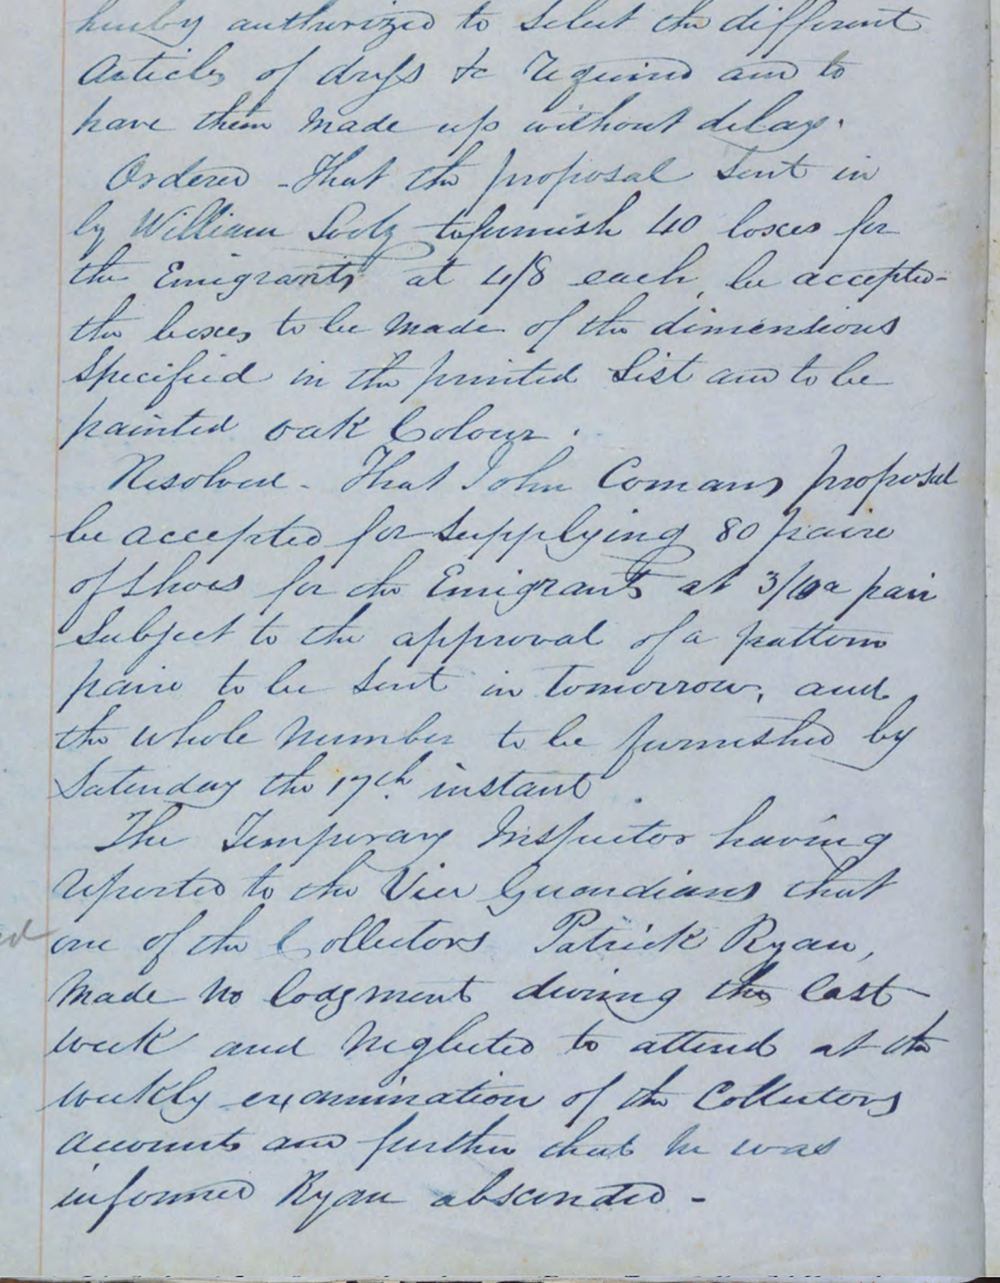 hereby authorized to select the different
Articles of dress &c required and to
have them made up without delay.
Ordered - That the proposal sent in
by William to furnish 40 boxes for
the Emigrants at 4/8 each, be accepted -
the boxes to be made of the dimensions
specified in the printed List and to be
painted oak Colour.
Resolved - That John Comans proposal
be accepted for supplying 80 pairs
of shoes for the Emigrants at 3/10 a pair
Subject to the approval of a pattern
pair to be sent in tomorrow, and
the whole number to be furnished by
Saturday the 17th instant
The Temporary Inspector having
reported to the Vice Guardians that
one of the Collectors Patrick Ryan,
made no lodgment during the last
week and neglected to attend at the
weekly examination of the Collectors
accounts and further that he was
informed Ryan absconded -